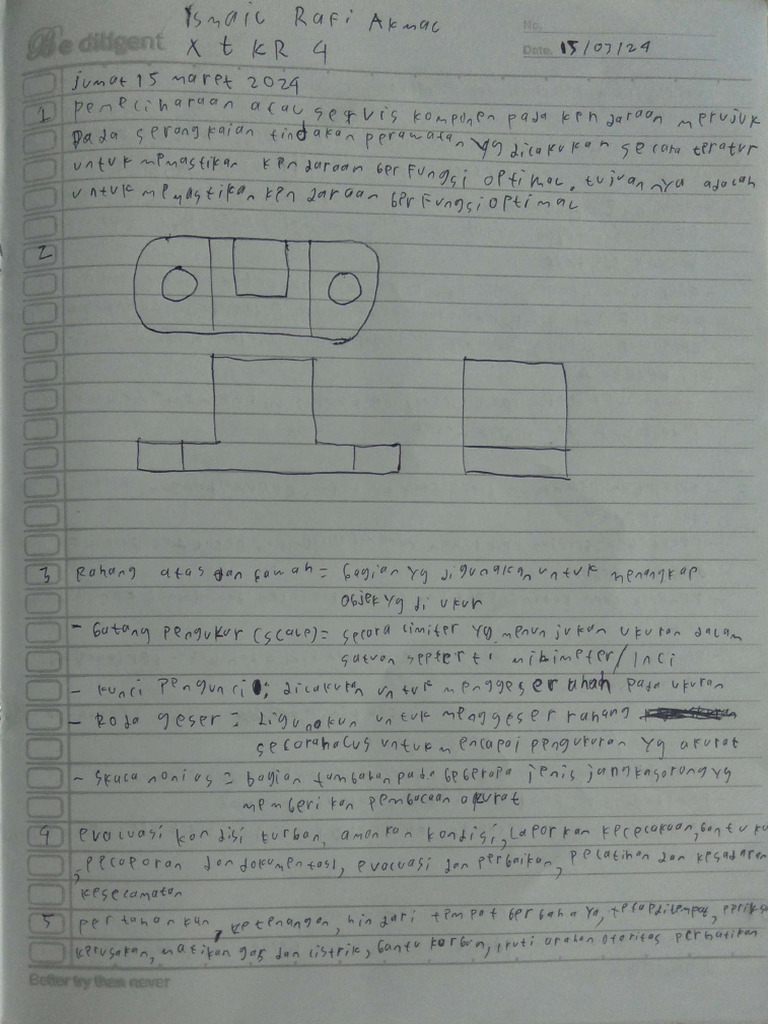 Ismail Rafi Akmal
No.
Be diligent X t KR 4
Date. 15/03/24
jumat 15 maret 2024
1 pemeliharaan atau servis komponen pada kendaraan merujuk
pada serangkaian tindakan perawatan yg dilakukan secara teratur
untuk memastikan kendaraan berfungsi optimal. tujuannya adalah
untuk memastikan kendaraan berfungsi optimal
2
3 Rahang atas dan bawah = bagian yg digunakan untuk menangkap
objek yg di ukur
- batang pengukur (scale) = secara limiter yg menunjukan ukuran dalam
satuan seperti milimeter/inci
- kunci pengunci : dilakukan untuk menggeser ahah pada ukuran
- Roda geser = digunakan untuk menggeser rahang
secarahalus untuk mencapai pengukuran yg akurat
- skala nonius = bagian tambahan pada beberapa jenis jangkasorong yg
memberikan pembacaan akurat
4 evaluasi kondisi turban, amankan kondisi, laporkan kecelakaan, bantu ku
, pelaporan dan dokumentasi, evaluasi dan perbaikan, pelatihan dan kesadaran
keselamatan
5 pertahankan, ketenangan, hindari tempat berbahaya, tetapditempat, periksa
kerusakan, matikan gas dan listrik, bantu korban, ikuti arahan otoritas perhatikan
Better try than never